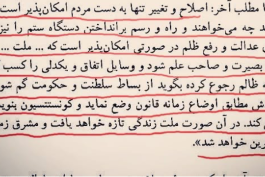 ما مطلب آخر: اصلاح و تغییر تنها به دست مردم امکان‌پذیر است
چه می‌خواهند و راه و رسم برانداختن دستگاه ستم را نیز
عدالت و رفع ظلم در صورتی امکان‌پذیر است که ... ملت ...
بصیرت و صاحب علم شود و وسایل اتفاق و یکدلی را کسب
ظالم رجوع کرده بگوید از بساط سلطنت و حکومت گم شو
ش مطابق اوضاع زمانه قانون وضع نماید و کونستتسیون بنویـ
کند. در آن صورت ملت زندگانی تازه خواهد یافت و مشرق زمـ
رین خواهد شد».